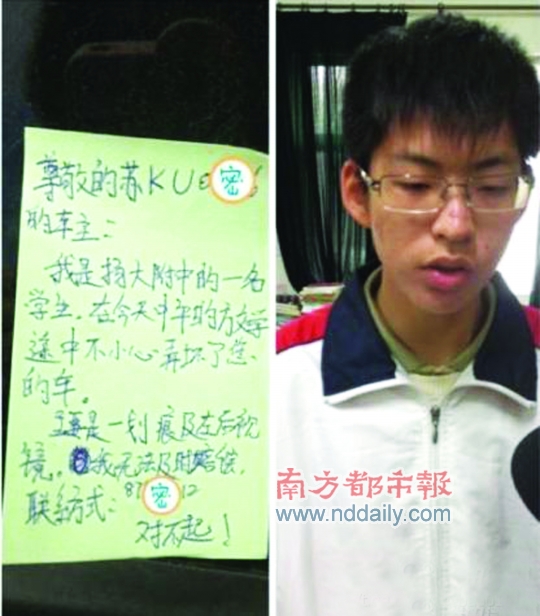 尊敬的苏KU0密6
的车主：
我是扬大附中的一名
学生，在今天中午的放学
途中不小心弄坏了您
的车。
主要是一划痕及左后视
镜，我无法及时赔偿，
联络方式：87密12
对不起！
南方都市報
www.nddaily.com